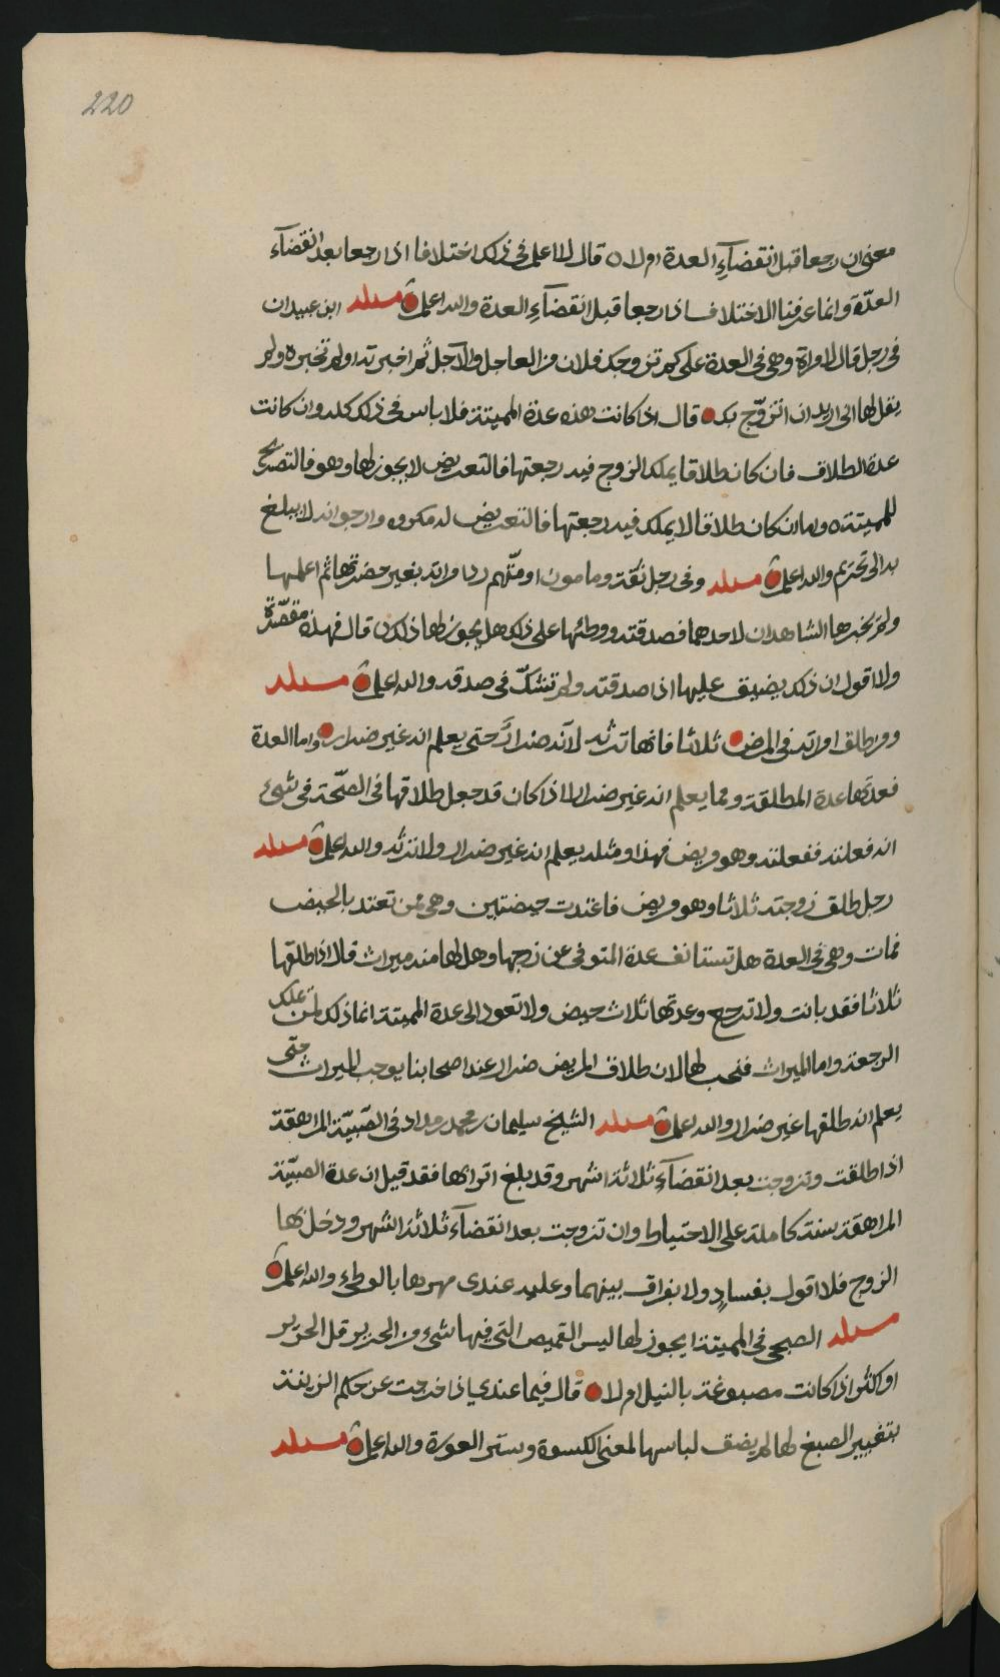 220
معنى ان رجعا قبل انقضآءِ العدة ام لا ٥ قال لا اعلم في ذلك اختلافا اذا رجعا بعد انقضآء
العدّة وانما عرفنا الاختلاف اذا رجعا قبل انقضآءِ العدة والله اعلم مسئلة ابن عبيدان
في رجل قال لامراة وهي في العدة على كم تزوجك فلان من العاجل والآجل ثم اخبرته او لم تخبره ولم
يقل لها اني اريد ان اتزوّج بك قال اذا كانت هذه عدة المميتة فلا باس في ذلك كله وان كانت
عدة الطلاق فان كان طلاقا يملك الزوج فيه رجعتها فالتعريض لا يجوز لها وهو فالتصريح
للمميتة ٥ واما ان كان طلاقا لا يملك فيه رجعتها فالتعريض له مكروه وارجوا انه لا يبلغ
به الى تحريم والله اعلم مسئلة وفي رجل ثقة ومامون او متّهم رد امراته بغير حضرتها ثم اعلمها
ولم يخبرها الشاهدان لاحدهما فصدقته ووطئها على ذلك هل يجوز لها ذلك ٥ قال فهذه مقصّرة
ولا اقول ان ذلك يضيق عليها اذا صدقته ولم تشكّ في صدقه والله اعلم مسئلة
ومن طلق امراته في المرض ثلاثا فانها ترثه لآنه ضرارٌ حتى يعلم انه غير ضرار واما العدة
فعدتها عدة المطلقة ومما يعلم انه غير ضرار اذا كان قد جعل طلاقها في الصّحة في شيء
انه فعلته ففعلته وهو مريض فهذا ومثله يعلم انه غير ضرار ولا ترثه والله اعلم مسئلة
رجل طلق زوجته ثلاثا وهو مريض فاعتدت حيضتين وهي ممن تعتد بالحيض
فمات وهي في العدة هل تستانف عدة المتوفى عن زوجها وهل لها منه ميراث قال اذا طلقها
ثلاثا فقد بانت ولا ترجع وعدتها ثلاث حيض ولا تعود الى عدة المميتة انما ذلك لمن تملك
الرجعة واما الميراث فنحب لها لان طلاق المريض ضرار عند اصحابنا يوجب الميراث حتى
يعلم انه طلقها غير ضرار والله اعلم مسئلة الشيخ سليمان بن محمد بن مداد في الصّبيّة المراهقة
اذا طلقت وتزوجت بعد انقضآءِ ثلاثة اشهر وقد بلغ اترابها فقد قيل ان عدة الصبيّة
المراهقة سنة كاملة على الاحتياط وان تزوجت بعد انقضآء ثلاثة اشهر ودخل بها
الزوج فلا اقول بفسادٍ ولا بفراق بينهما وعليه عندى مهرها بالوطىء والله اعلم
مسئلة الصبحي في المميتة ايجوز لها لبس القميص التي فيها شيء من الحرير قل الحرير
او اكثر اذا كانت مصبوغة بالنيل ام لا قال فيما عندي اذا خرجت عن حكم الزينة
بتغيير الصبغ لها لم يضق لباسها لمعنى الكسوة وستر العورة والله اعلم مسئلة